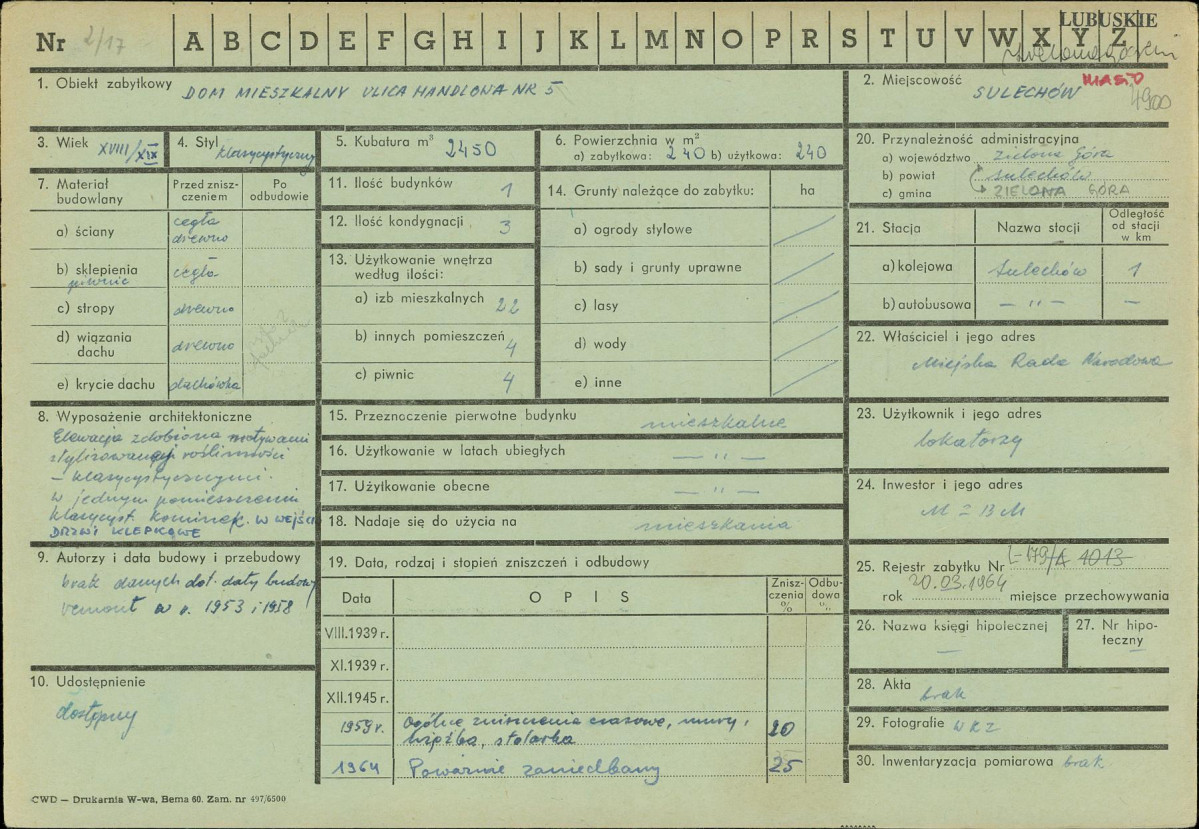 LUBUSKIE
Nr 2/17 A B C D E F G H I J K L M N O P R S T U V W X Y Z
1. Obiekt zabytkowy DOM MIESZKALNY ULICA HANDLOWA NR 5
2. Miejscowość MIASTO
SULECHÓW 4900
3. Wiek XVIII/XIX
4. Styl klasycystyczny
5. Kubatura m³ 2450
6. Powierzchnia w m²
a) zabytkowa: 240 b) użytkowa: 240
20. Przynależność administracyjna
a) województwo zielona Góra
b) powiat sulechów
c) gmina ZIELONA GÓRA
7. Materiał budowlany
Przed zniszczeniem
Po odbudowie
a) ściany cegła drewno
b) sklepienia piwnic cegła
c) stropy drewno
d) wiązania dachu drewno
e) krycie dachu dachówka
11. Ilość budynków 1
12. Ilość kondygnacji 3
13. Użytkowanie wnętrza
według ilości:
a) izb mieszkalnych 22
b) innych pomieszczeń 4
c) piwnic 4
14. Grunty należące do zabytku: ha
a) ogrody stylowe
b) sady i grunty uprawne
c) lasy
d) wody
e) inne
21. Stacja
Nazwa stocji
Odległość od stacji w km
a) kolejowa Sulechów 1
b) autobusowa — " — —
22. Właściciel i jego adres
Miejska Rada Narodowa
8. Wyposażenie architektoniczne
Elewacja zdobiona motywami
stylizowanej roślinności
– klasycystycznymi.
w jednym pomieszczeniu
klasycyst. kominek. W WEJŚCIU
DRZWI KLEPKOWE
15. Przeznaczenie pierwotne budynku mieszkalne
16. Użytkowanie w latach ubiegłych — " —
17. Użytkowanie obecne — " —
18. Nadaje się do użycia na mieszkania
23. Użytkownik i jego adres
lokatorzy
24. Inwestor i jego adres
M Z B M
9. Autorzy i data budowy i przebudowy
brak danych dot. daty budowy
remont w r. 1953 i 1958
19. Data, rodzaj i stopień zniszczeń i odbudowy
Data
O P I S
Zniszczenia %
Odbudowa %
VIII.1939 r.
XI.1939 r.
XII.1945 r.
1959 r. Ogólne zniszczenia czasowe, mury,
więźba, stolarka 20
1964 Poważnie zaniedbany 25
25. Rejestr zabytku Nr L-179/A 1013
20.03.1964
rok miejsce przechowywania
26. Nazwa księgi hipotecznej
—
27. Nr hipoteczny
—
10. Udostępnienie
dostępny
28. Akta brak
29. Fotografie WKZ
30. Inwentaryzacja pomiarowa brak
CWD — Drukarnia W-wa, Bema 60. Zam. nr 497/6500